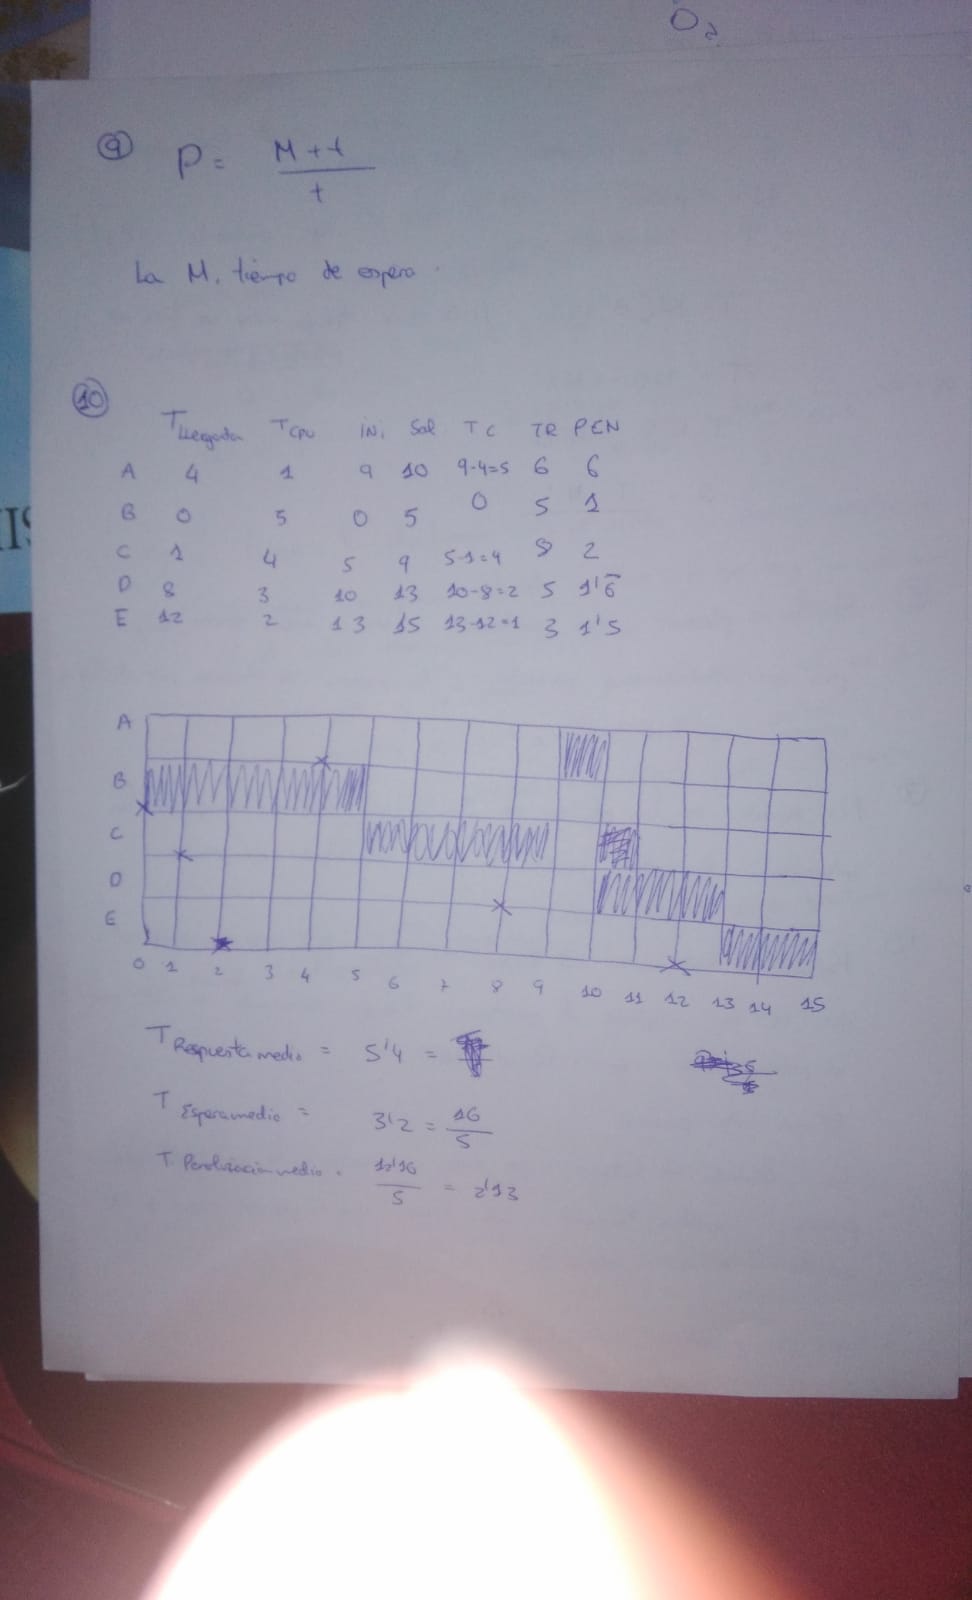 O₂
9 P = M + t / t
La M, tiempo de espera.
10
T Llegada T CPU INi Sal TC TR PEN
A 4 1 9 10 9-4=5 6 6
B 0 5 0 5 0 5 1
C 1 4 5 9 5-1=4 8 2
D 8 3 10 13 10-8=2 5 1'6̅
E 12 2 13 15 13-12=1 3 1'5
A
B
C
D
E
0 1 2 3 4 5 6 7 8 9 10 11 12 13 14 15
T Respuesta medio = 5'4 =
T Espera medio = 3'2 = 16 / 5
T Penalización medio = 12'16 / 5 = 2'13